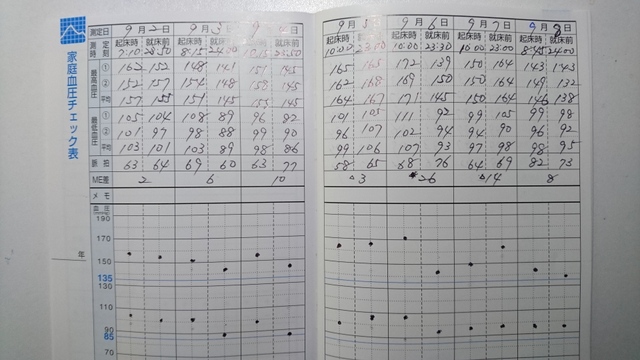 家庭血圧チェック表
年
測定日 9月2日 9月3日 9月 日
測定時刻 起床時 就床前 起床時 就床前 起床時 就床前
7:10 23:50 8:15
最高血圧 ① 162 152 148 145 151 145
② 152 157 154 148 158 145
平均 157 155 151 145 155 145
最低血圧 ① 105 104 108 89 96 82
② 101 97 98 88 99 90
平均 103 101 103 89 98 86
脈拍 63 64 69 60 63 77
ME差 2 6 10
メモ
血圧
190
170
150
135
110
90
85
70
9月5日 9月6日 9月7日 9月8日
起床時 就床前 起床時 就床前 起床時 就床前 起床時 就床前
10:00 10:00 23:30 10:00 23:00 8:45 24:00
165 165 172 139 150 164 143 143
162 168 169 150 150 164 149 132
164 167 171 145 150 164 146 138
101 105 111 92 99 105 99 98
96 107 102 94 94 90 96 92
99 106 107 93 97 98 98 95
58 65 68 76 64 69 82 73
△3 26 △14 8